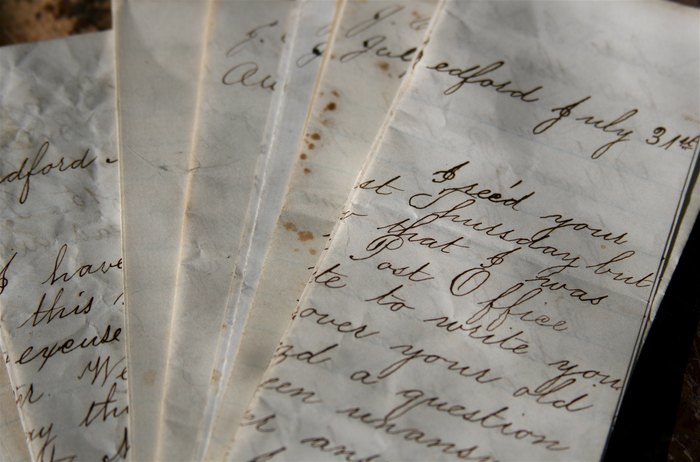 dford
I have
this
excuse
We
J.
Au
J.
July
edford July 31st
I rec'd your
st Thursday but
that I was
Post Office
te to write you
over your old
nd a question
een unansw
er an